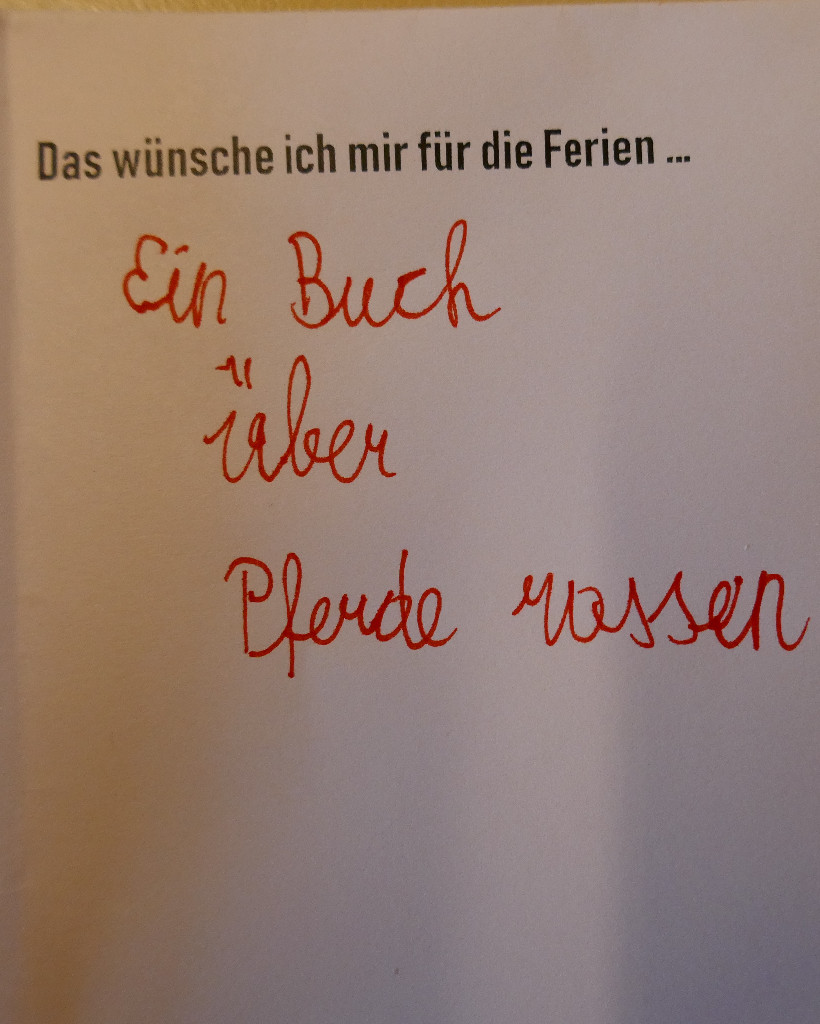 Das wünsche ich mir für die Ferien ...
Ein Buch
über
Pferde rassen